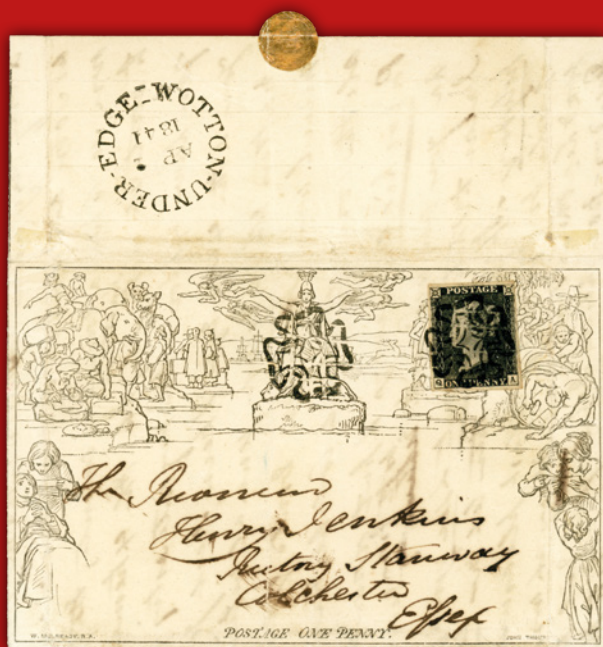 WOTTON-UNDER-EDGE
AP
1841
POSTAGE
ONE PENNY
The Reverend
Henry Jenkins
Rectory Stanway
Colchester
Essex
POSTAGE ONE PENNY.